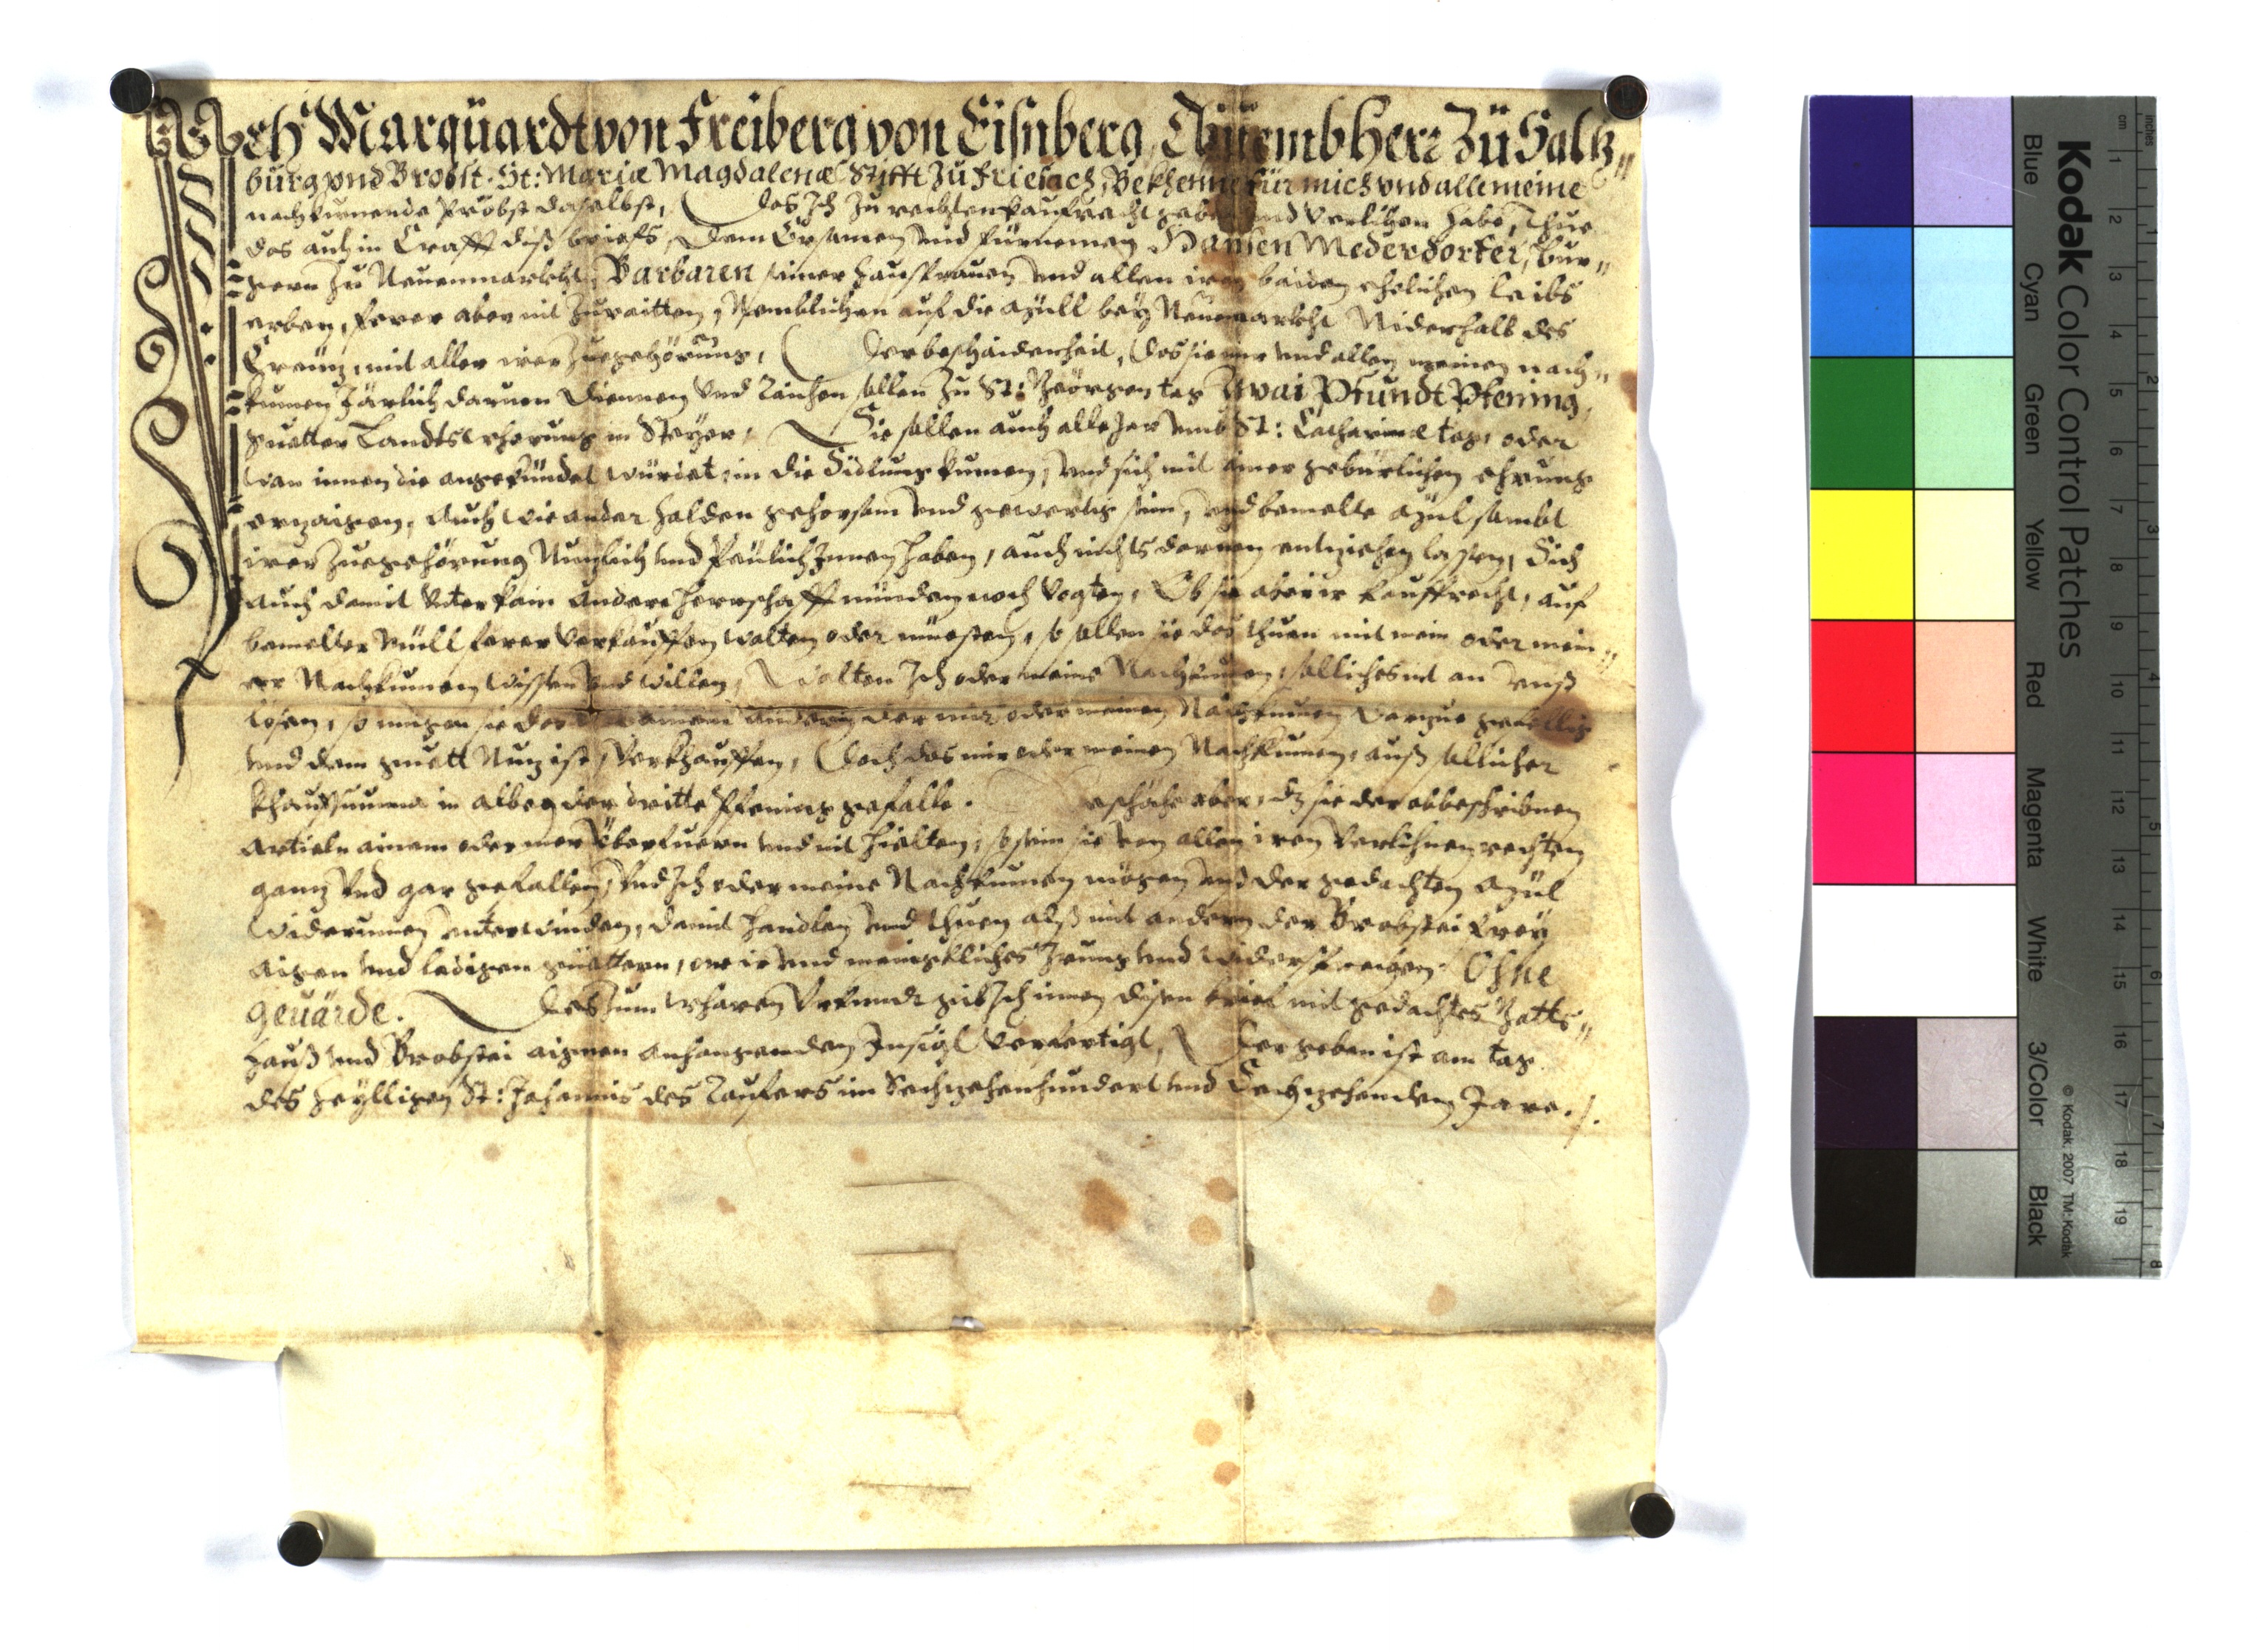 Ich Marquardt von Freiberg von Eisnberg, Thuemb Herr Zu Saltz„
burg vnd Brobst. St: Mariæ Magdalenæ Stifft Zu Friesach, Bekhenne für mich vnd alle meine
nachkumende Pröbst daselbst, Das Ich zu rechten kaufrecht geben vnd verlihen habe, Thue
das auch in Crafft diß briefs, Dem Ersamen und fürnemen Hansen Mederdorfer, bur„
gern zu Neuenmarkht, Barbaren seiner hausfrauen vnd allen iren baiden ehelichen leibs
erben, ferer aber nit zuraitten, Nemblichen auf die Müll bey Neuemarkht Niderhalb des
Creüz, mit aller irer Zuegehörung, Der beschaidenheit, das sie mir vnd allen meinen nach„
kumen Järlich daruon diennen vnd raichen sollen zu St: Geörgen tag Zwai Pfundt Pfening,
guetter Landts wherung in Steyer, Sie sollen auch alle Jar vmb St: Catharinæ tag, oder
wan innen die angekündet würdet, in die Stifftung kumen, vnd sich mit ainer gebürlichen ehrung
erzaigen, Auch wie ander holden gehorsam vnd gewertig sein, vnd bemelte Mül sambt
irer Zuegehörung Nuzlich vnd Peulich Innen haben, auch nichts daruon entziehen lassen, Sich
auch damit vnter kain andere herrschafft wünden noch vogten, Ob sie aber ir kauffrecht, auf
bemelter Müll ferer verkauffen wolten oder müesten, so sollen sie das thuen mit mein oder mein„
er Nachkumen wissen vnd willen, Wolten Ich oder meine Nachkumen, solliches nit an vnß
lösen, so mügen sie das ainem andern der mir oder meinen Nachkumen darzue gefellig
vnd dem guett Nuz ist, Verkhauffen, Doch das mir oder meinen Nachkumen, auß sollicher
khauffsumma in alweg der dritte Pfening gefalle. Beschähe aber, dz sie der obbeschribnen
Articln ainem oder mer Überfuern vnd nit hielten, so sein sie von allen iren verlihnen rechten
ganz vnd gar gefallen, vnd Ich oder meine Nachkumen mögen vnß der gedachten Mül
widerumen vnterwinden, damit handlen vnd thuen alß mit andern der Brobstei frey
aigen vnd ledigen güettern, on ir vnd meingkliches Irrung vnd widersprechen. Ohne
geuärde. Des zum wharen Vrkundt gib Ich innen disen brief mit gedachtes Gotts„
hauß vnd Brobstei aignen anhangenden Insigl verfertigt, Der geben ist am tag
des heylligen St: Johannis des Taufers im Sechzehenhundert vnd Sechzehenden Jare./.
Kodak Color Control Patches
Blue Cyan Green Yellow Red Magenta White 3/Color Black
© Kodak, 2007 TM: Kodak
cm 1 2 3 4 5 6 7 8 9 10 11 12 13 14 15 16 17 18 19
inches 1 2 3 4 5 6 7 8